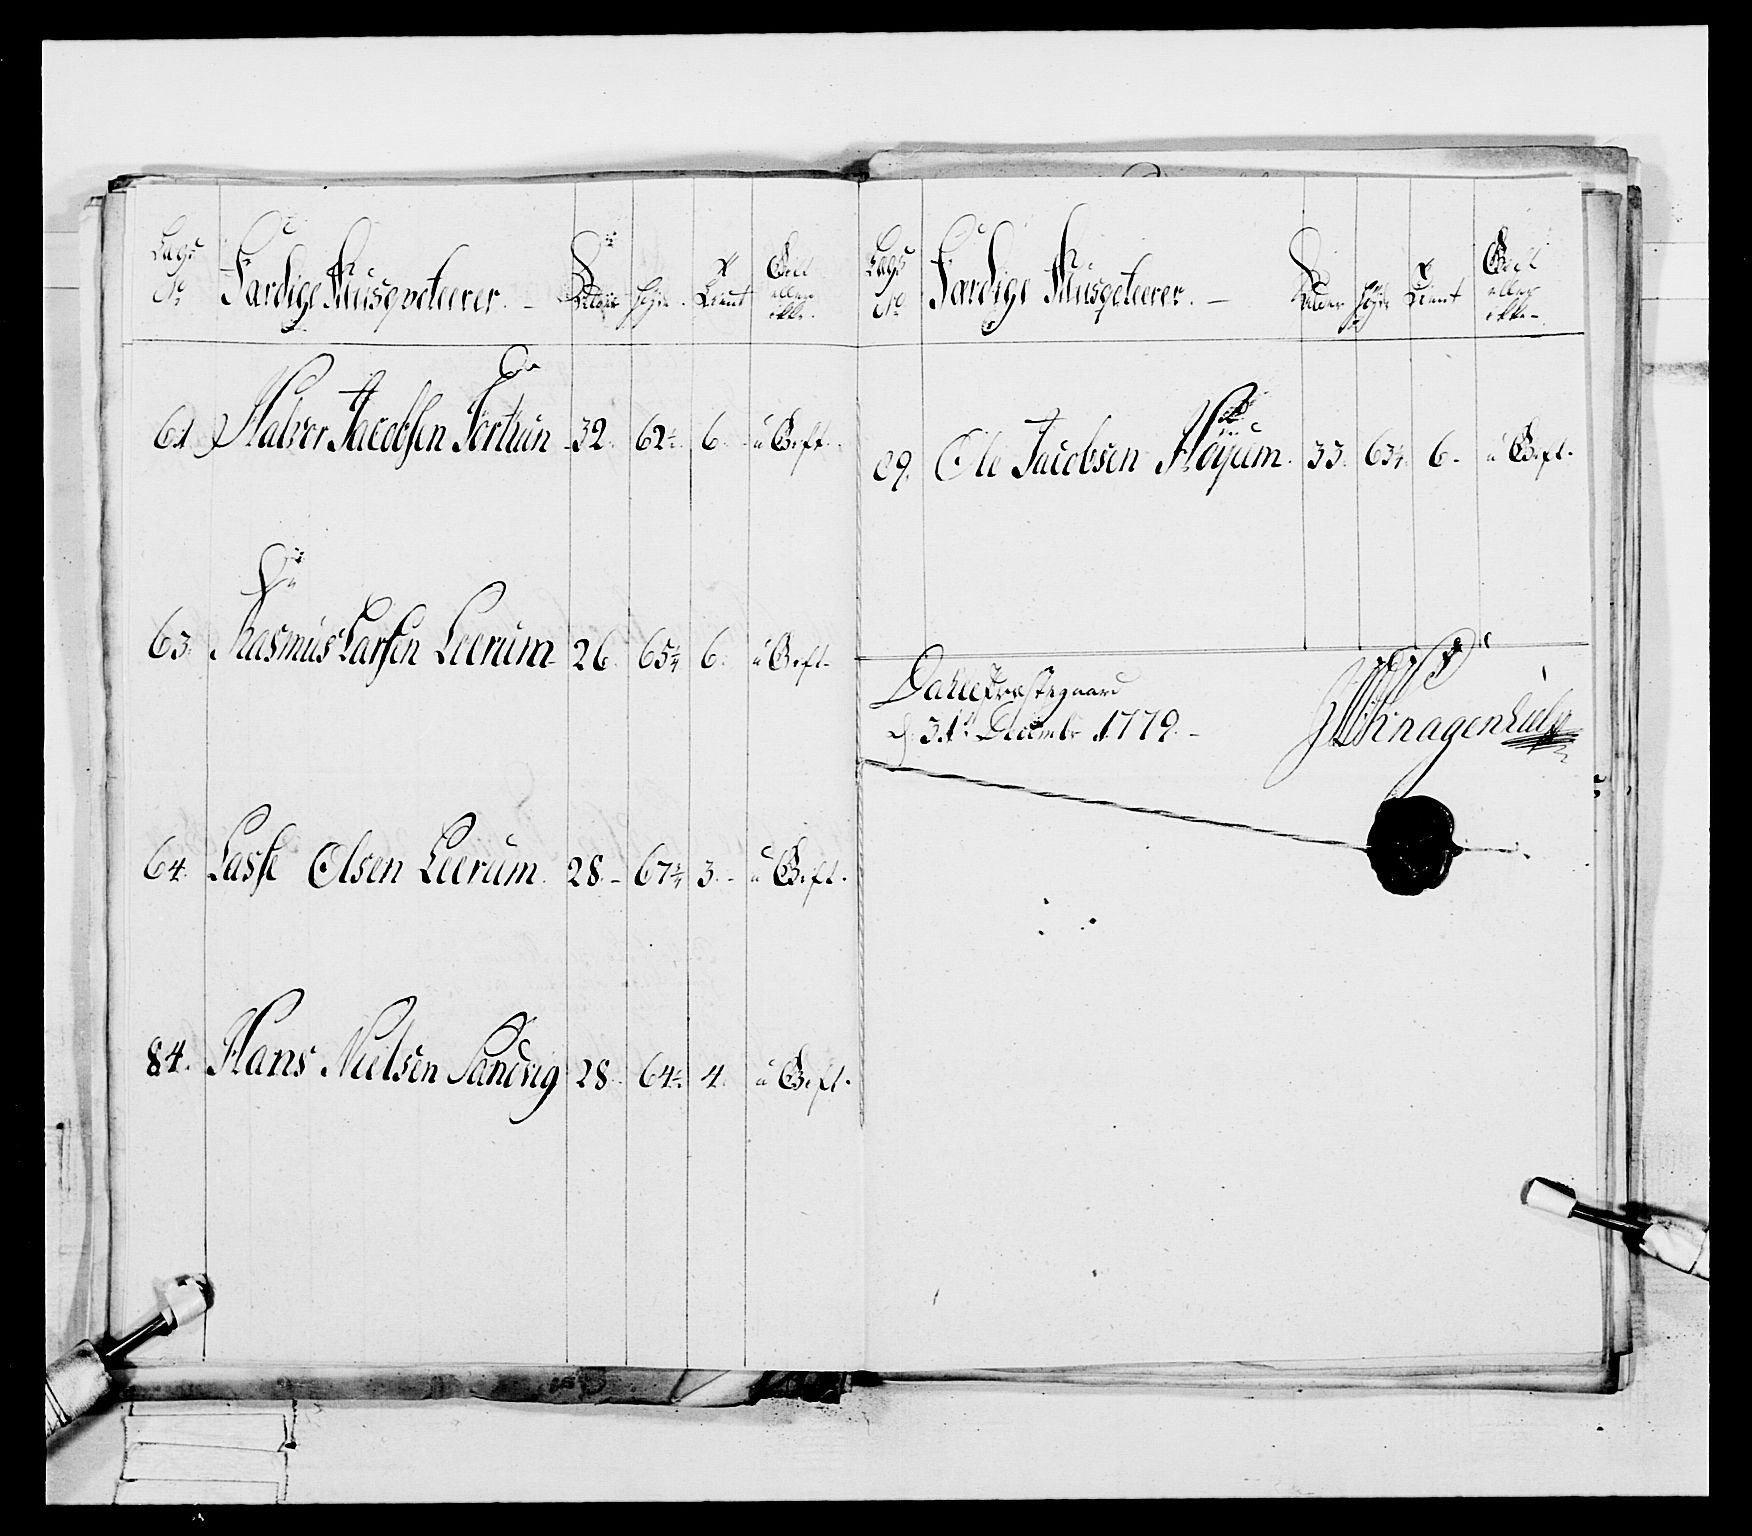 Lægs
No
Færdige Musqveteerer. —
Alder
Høyde
Tient
Givt
eller
ikke.
61. Halvor Jacobsen Fortun 32. 62½ 6. u Gift.
63. Rasmus Larsen Leerum 26. 65¼ 6. u Gift.
64. Lasse Olsen Leerum. 28. 67¼ 3. u Gift.
84. Hans Nielsen Sandvig 28. 64½ 4. u Gift.
Lægs
No
Færdige Musqveteerer. —
Alder
Høyde
Tient
Givt
eller
ikke
89. Ole Jacobsen Høyum. 33. 63¼ 6. u Gift.
Dahle Præstegaard
d. 31te Decembr 1779.
Knagenhielm